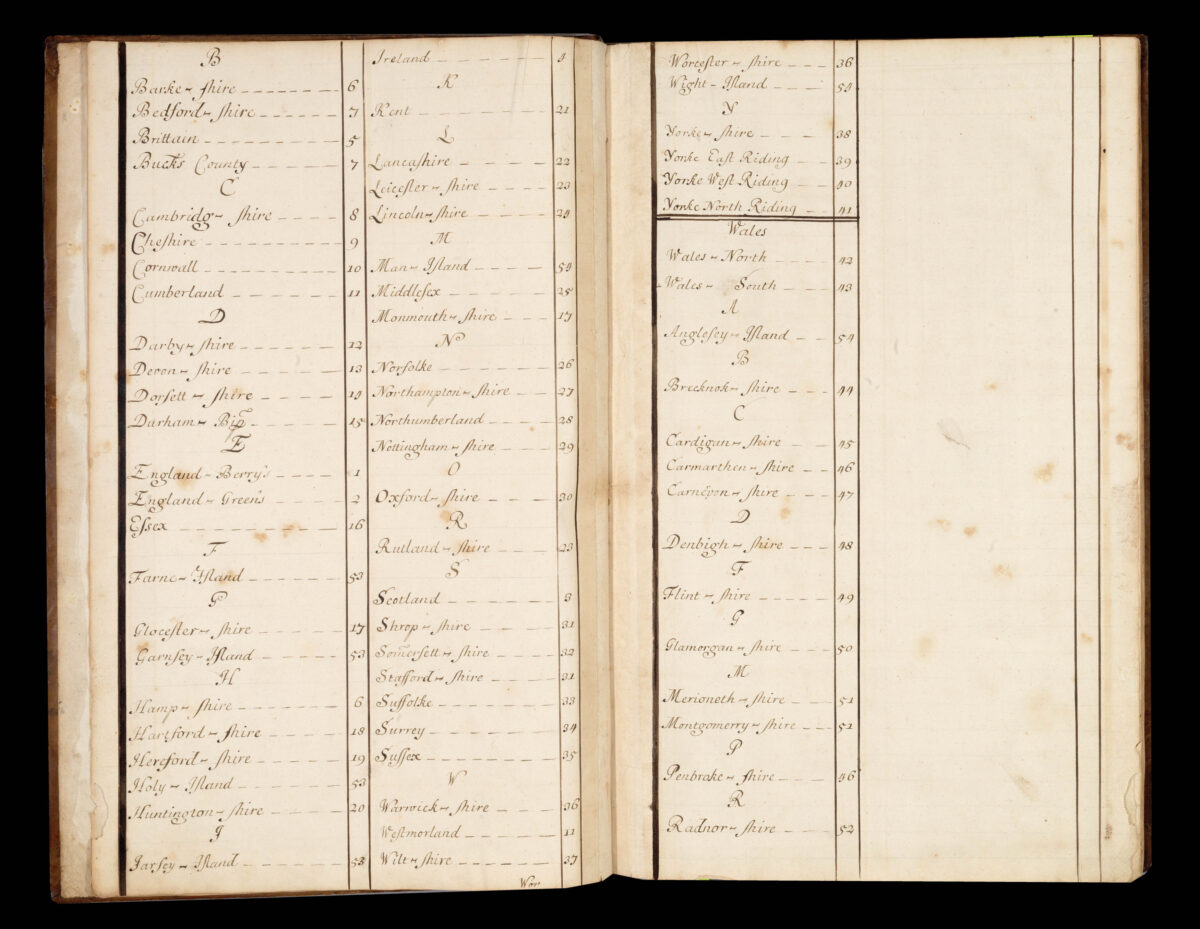 B
Barke-shire 6
Bedford-shire 7
Brittain 5
Bucks County 7
C
Cambridg-shire 8
Cheshire 9
Cornwall 10
Cumberland 11
D
Darby-shire 12
Devon-shire 13
Dorsett-shire 14
Darham- Bip 15
E
England-Berry's 1
England-Green's 2
Essex 16
F
Farne-Island 53
G
Glocester-shire 17
Garnsey-Island 53
H
Hamp-shire 6
Hartford-shire 18
Hereford-shire 19
Holy-Island 53
Huntington-shire 20
J
Jarsey-Island 53
Ireland 4
K
Kent 21
L
Lancashire 22
Leicester-shire 23
Lincoln-shire 24
M
Man-Island 54
Middlesex 25
Monmouth-shire 17
N
Norfolke 26
Northampton-shire 27
Northumberland 28
Nottingham-shire 29
O
Oxford-shire 30
R
Rutland-shire 23
S
Scotland 3
Shrop-shire 31
Somersett-shire 32
Stafford-shire 31
Suffolke 33
Surrey 34
Sussex 35
W
Warwick-shire 36
Westmorland 11
Wilt-shire 37
Wor
Worcester-shire 36
Wight-Island 54
Y
Yorke-shire 38
Yorke East Riding 39
Yorke West Riding 40
Yorke North Riding 41
Wales
Wales-North 42
Wales- South 43
A
Anglesey-Island 54
B
Brecknok-shire 44
C
Cardigan-shire 45
Carmarthen-shire 46
Carnevon-shire 47
D
Denbigh-shire 48
F
Flint-shire 49
G
Glamorgan-shire 50
M
Merioneth-shire 51
Montgomerry-shire 51
P
Penbroke-shire 46
R
Radnor-shire 52